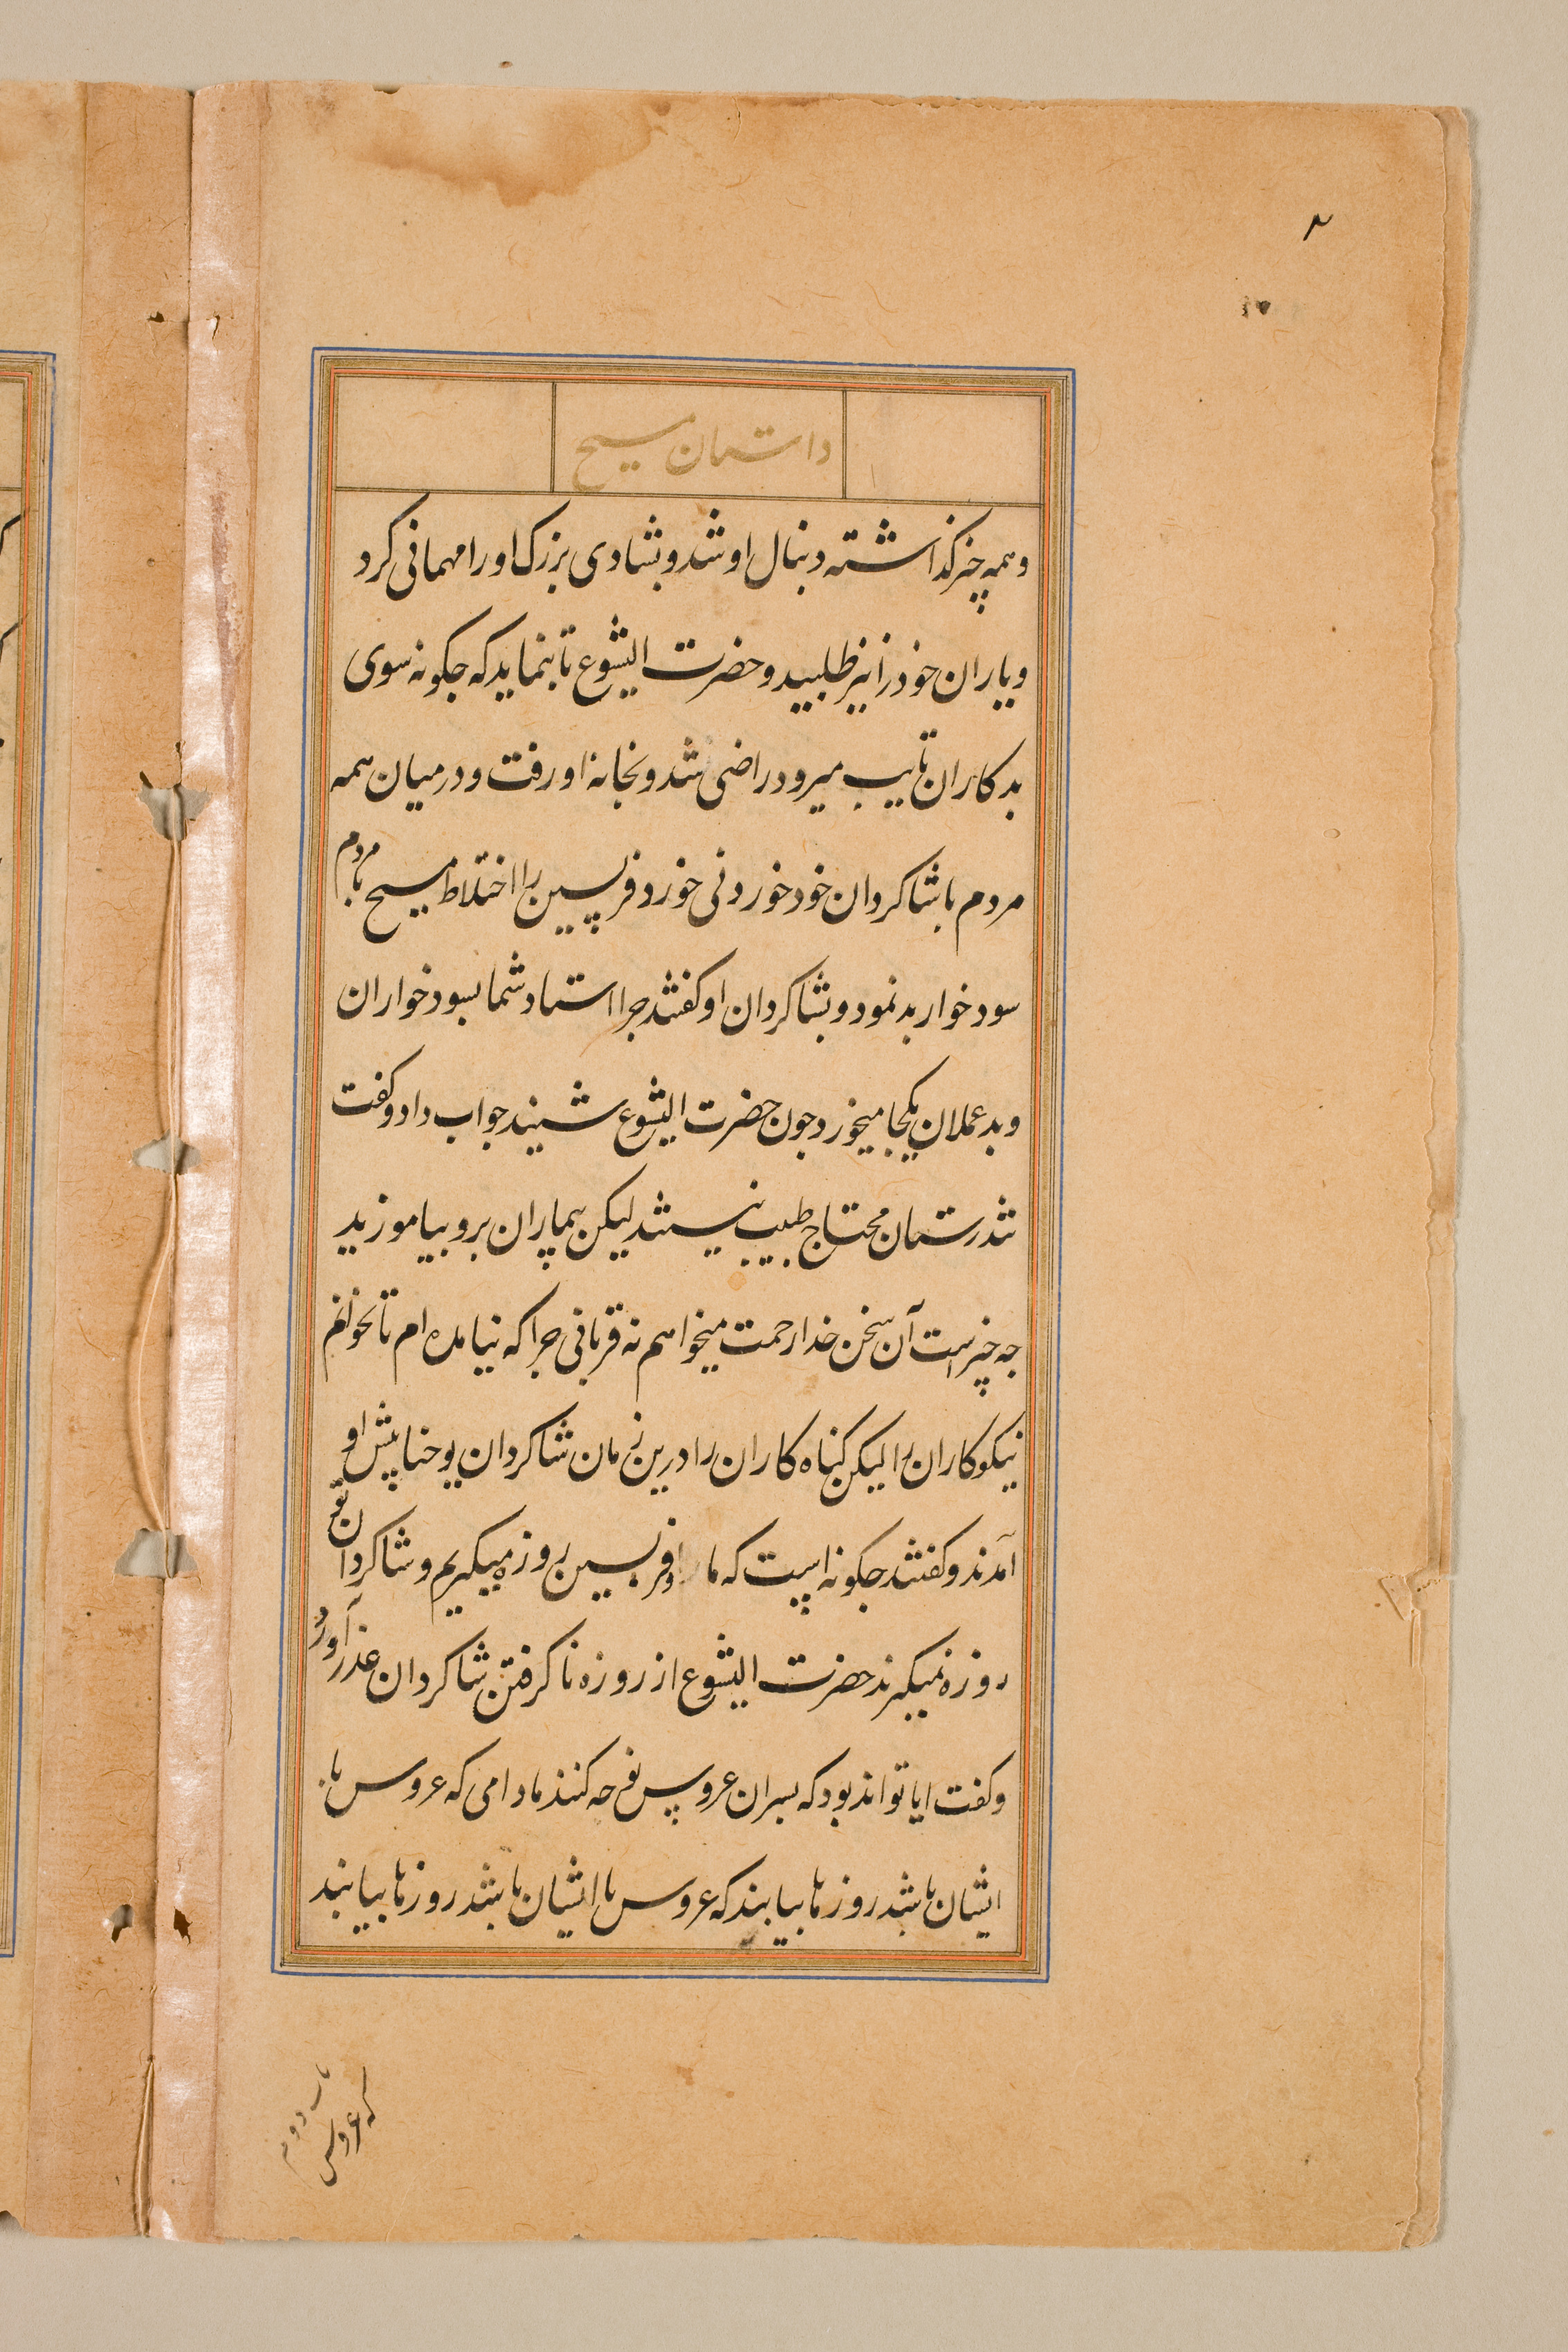 داستان مسیح
وهمه چیز کذاشته دنبال او شد و بشادی بزرک او را مهمانی کرد
ویاران خود را نیز طلبید و حضرت ایشوع تا بنماید که جکونه سوی
بدکاران تایب میرود راضی شد و بخانهٔ او رفت و در میان همه
مردم با شاکردان خود خوردنی خورد فریسین را اختلاط مسیح بامردم
سودخوار بد نمود و بشاکردان او کفتند جرا استاد شما بسودخواران
وبدعملان یکجا میخورد جون حضرت ایشوع شنیند جواب داد و کفت
تندرستان محتاج طبیب نیستند لیکن بیماران برو بیاموزید
جه چیز است آن سخن خدا رحمت میخواهم نه قربانی جرا که نیامده ام تا بخوانم
نیکوکاران را لیکن کناه کاران را درین زمان شاکردان یوحنا پیش او
آمدند و کفتند جکونه است که ما و فریسین روزه میکیریم و شاکردان تو
روزه نمیکیرند حضرت ایشوع از روزه نا کرفتن شاکردان عذر آورد
وکفت ایا تواند بود که پسران عروس نوحه کنند مادامی که عروس با
ایشان باشد روزها بیایند که عروس با ایشان باشد روزها بیایند
که عروس
باب دوم